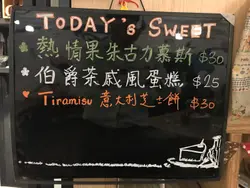 TODAY's SWEET
熱情果朱古力慕斯 $30
伯爵茶戚風蛋糕 $25
Tiramisu 意大利芝士餅 $30